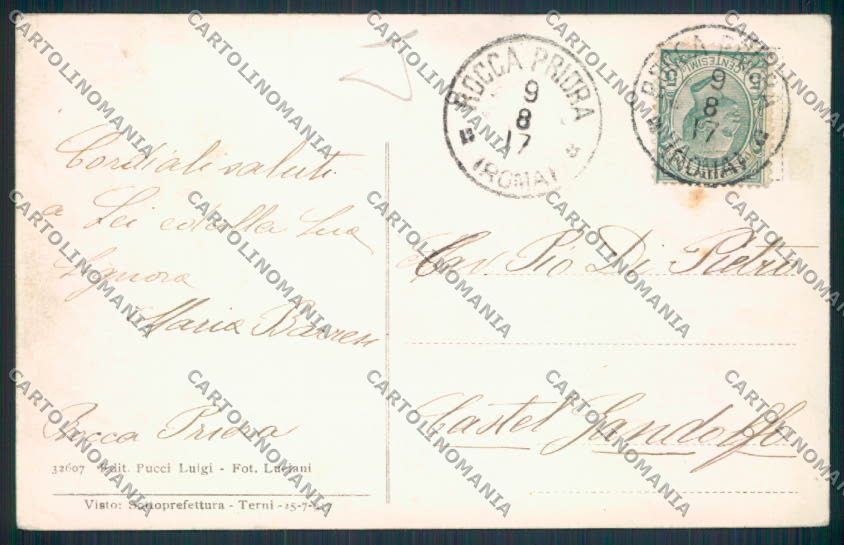 ROCCA PRIORA
9
8
17
(ROMA)
ROCCA PRIORA
9
8
17
(ROMA)
CENTESIMI
Cordiali saluti
a Lei ed alla Sua
Signora
Maria
Rocca Priora
Cav. Pio Di Pietro
Castel Gandolfo
32607 Edit. Pucci Luigi - Fot. Luciani
Visto: Sottoprefettura - Terni -15-7-
CARTOLINOMANIA